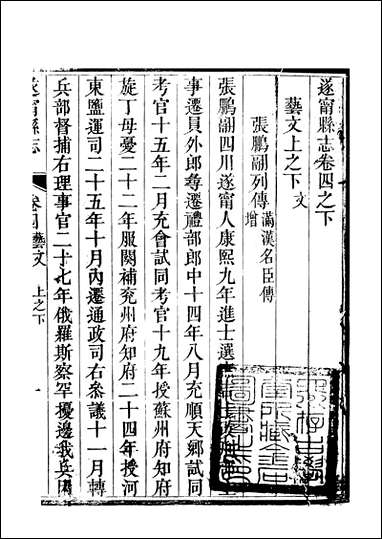 遂甯縣志卷四之下
藝文上之下 文
張鵬翮列傳 滿漢名臣傳增
張鵬翮四川遂甯人康熙九年進士選
事遷員外郎尋遷禮部郎中十四年八月充順天鄉試同
考官十五年二月充會試同考官十九年授蘇州府知府
旋丁母憂二十二年服闋補兖州府知府二十四年授河
東鹽運司二十五年十月內遷通政司右參議十一月轉
兵部督捕右理事官二十七年俄羅斯察罕擾邊我兵困
遂甯縣志 卷四藝文 上之下 一